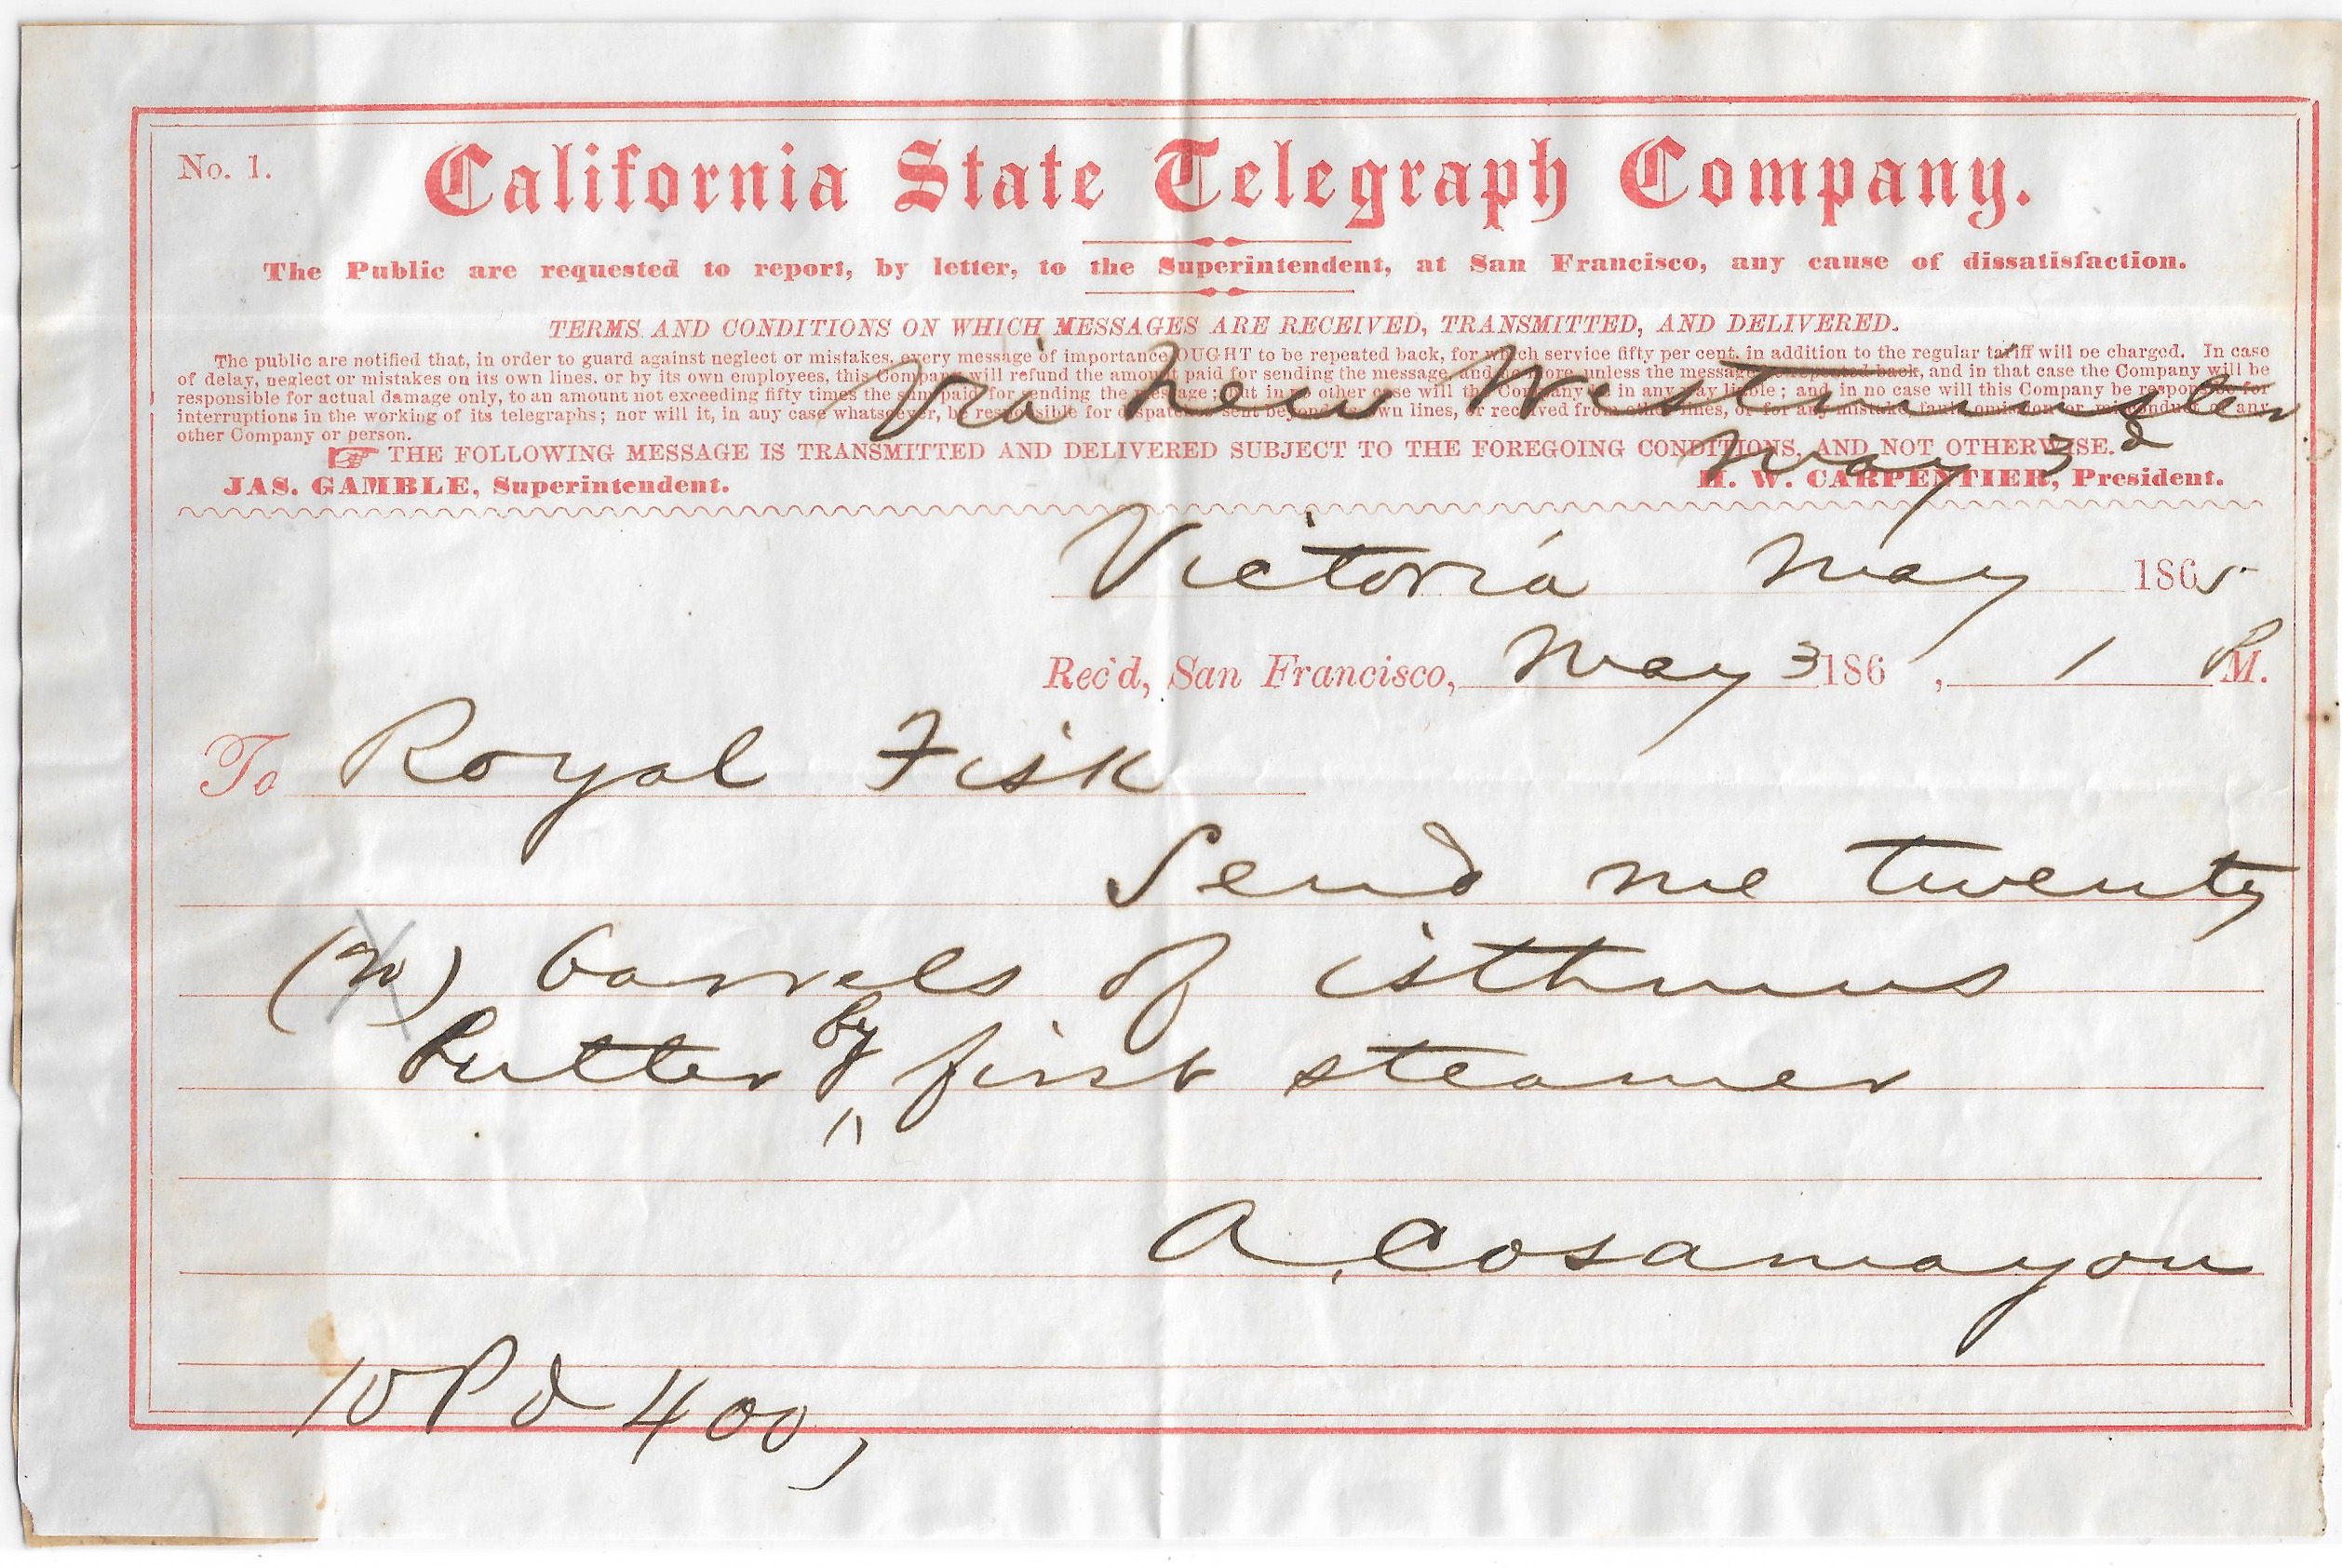 No. 1.
California State Telegraph Company.
The Public are requested to report, by letter, to the Superintendent, at San Francisco, any cause of dissatisfaction.
TERMS AND CONDITIONS ON WHICH MESSAGES ARE RECEIVED, TRANSMITTED, AND DELIVERED.
The public are notified that, in order to guard against neglect or mistakes, every message of importance OUGHT to be repeated back, for which service fifty per cent. in addition to the regular tariff will be charged. In case
of delay, neglect or mistakes on its own lines, or by its own employees, this Company will refund the amount paid for sending the message, and no more, unless the message repeated back, and in that case the Company will be
responsible for actual damage only, to an amount not exceeding fifty times the sum paid for sending the message; but in no other case will the Company be in any way liable; and in no case will this Company be responsible for
interruptions in the working of its telegraphs; nor will it, in any case whatsoever, be responsible for dispatches sent beyond its own lines, or received from other lines, or for any mistake, fault, omission or misconduct of any
other Company or person.
Via New Westminster
May 3d
☞ THE FOLLOWING MESSAGE IS TRANSMITTED AND DELIVERED SUBJECT TO THE FOREGOING CONDITIONS, AND NOT OTHERWISE.
JAS. GAMBLE, Superintendent. H. W. CARPENTIER, President.
Victoria May 1865
Rec'd, San Francisco, May 3 186 , 1 P M.
To Royal Fisk
Send me twenty
(20) barrels of isthmus
butter by first steamer
A. Cosamayou
10 Pd 400,